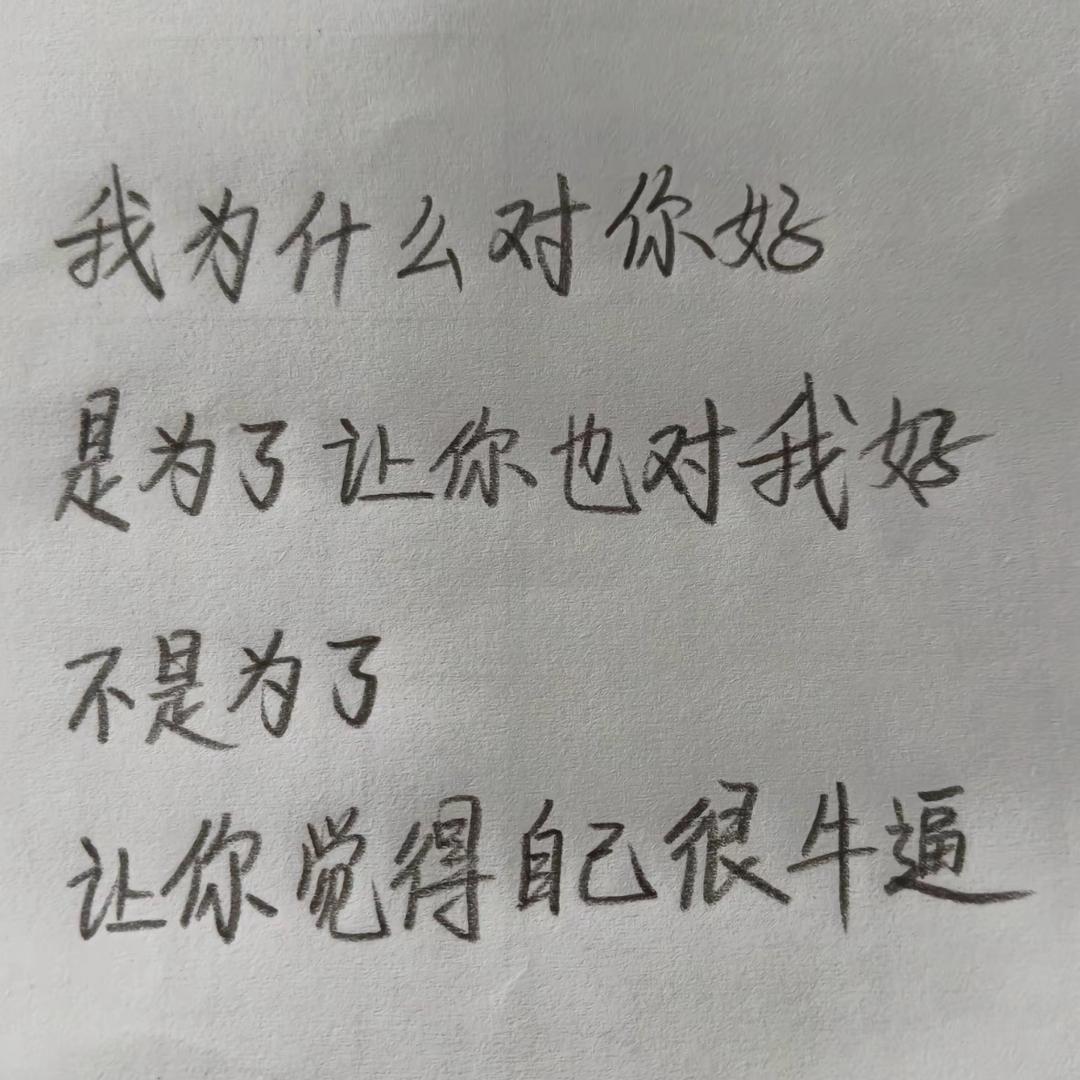 我为什么对你好
是为了让你也对我好
不是为了
让你觉得自己很牛逼